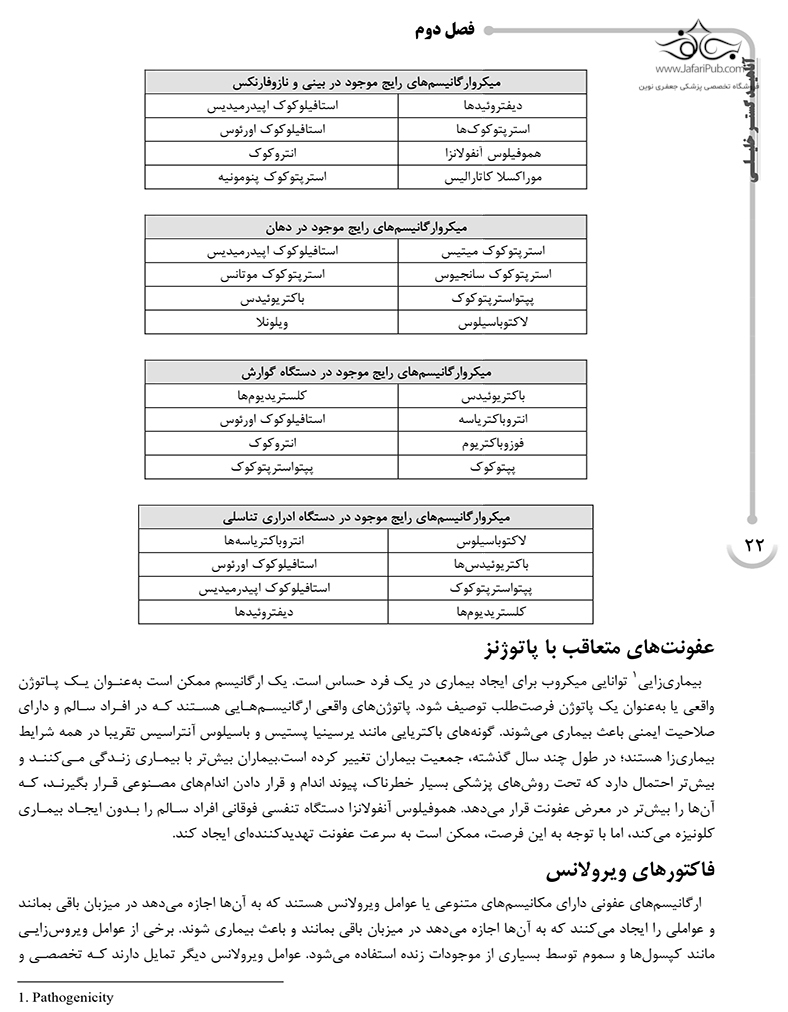 فصل دوم
www.JafariPub.com
فروشگاه تخصصی پزشکی جعفری نوین
آناهیتا گستر خلیلی
میکروارگانیسم‌های رایج موجود در بینی و نازوفارنکس
دیفتروئیدها استافیلوکوک اپیدرمیدیس
استرپتوکوک‌ها استافیلوکوک اورئوس
هموفیلوس آنفولانزا انتروکوک
موراکسلا کاتارالیس استرپتوکوک پنومونیه
میکروارگانیسم‌های رایج موجود در دهان
استرپتوکوک میتیس استافیلوکوک اپیدرمیدیس
استرپتوکوک سانجیوس استرپتوکوک موتانس
پپتواسترپتوکوک باکتریوئیدس
لاکتوباسیلوس ویلونلا
میکروارگانیسم‌های رایج موجود در دستگاه گوارش
باکتریوئیدس کلستریدیوم‌ها
انتروباکتریاسه استافیلوکوک اورئوس
فوزوباکتریوم انتروکوک
پپتوکوک پپتواسترپتوکوک
میکروارگانیسم‌های رایج موجود در دستگاه ادراری تناسلی
لاکتوباسیلوس انتروباکتریاسه‌ها
باکتریوئیدس‌ها استافیلوکوک اورئوس
پپتواسترپتوکوک استافیلوکوک اپیدرمیدیس
کلستریدیوم‌ها دیفتروئیدها
۲۲
عفونت‌های متعاقب با پاتوژنز
بیماری‌زایی۱ توانایی میکروب برای ایجاد بیماری در یک فرد حساس است. یک ارگانیسم ممکن است به‌عنـوان یـک پـاتوژن
واقعی یا به‌عنوان یک پاتوژن فرصت‌طلب توصیف شود. پاتوژن‌های واقعی ارگانیسـم‌هـایی هسـتند کـه در افـراد سـالم و دارای
صلاحیت ایمنی باعث بیماری می‌شوند. گونه‌های باکتریایی مانند یرسینیا پستیس و باسیلوس آنتراسیس تقریبا در همه شرایط
بیماری‌زا هستند؛ در طول چند سال گذشته، جمعیت بیماران تغییر کرده است.بیماران بیش‌تر با بیمـاری زنـدگی مـی‌کننـد و
بیش‌تر احتمال دارد که تحت روش‌های پزشکی بسیار خطرناک، پیوند اندام و قرار دادن اندام‌های مصـنوعی قـرار بگیرنـد، کـه
آن‌ها را بیش‌تر در معرض عفونت قرار می‌دهد. هموفیلوس آنفولانزا دستگاه تنفسی فوقانی افراد سـالم را بـدون ایجـاد بیمـاری
کلونیزه می‌کند، اما با توجه به این فرصت، ممکن است به سرعت عفونت تهدیدکننده‌ای ایجاد کند.
فاکتورهای ویرولانس
ارگانیسم‌های عفونی دارای مکانیسم‌های متنوعی یا عوامل ویرولانس هستند که به آن‌ها اجازه می‌دهد در میزبان باقی بمانند
و عواملی را ایجاد می‌کنند که به آن‌ها اجازه می‌دهد در میزبان باقی بمانند و باعث بیماری شوند. برخی از عوامل ویروس‌زایـی
مانند کپسول‌ها و سموم توسط بسیاری از موجودات زنده استفاده می‌شود. عوامل ویرولانس دیگر تمایل دارند کـه تخصصـی و
1. Pathogenicity